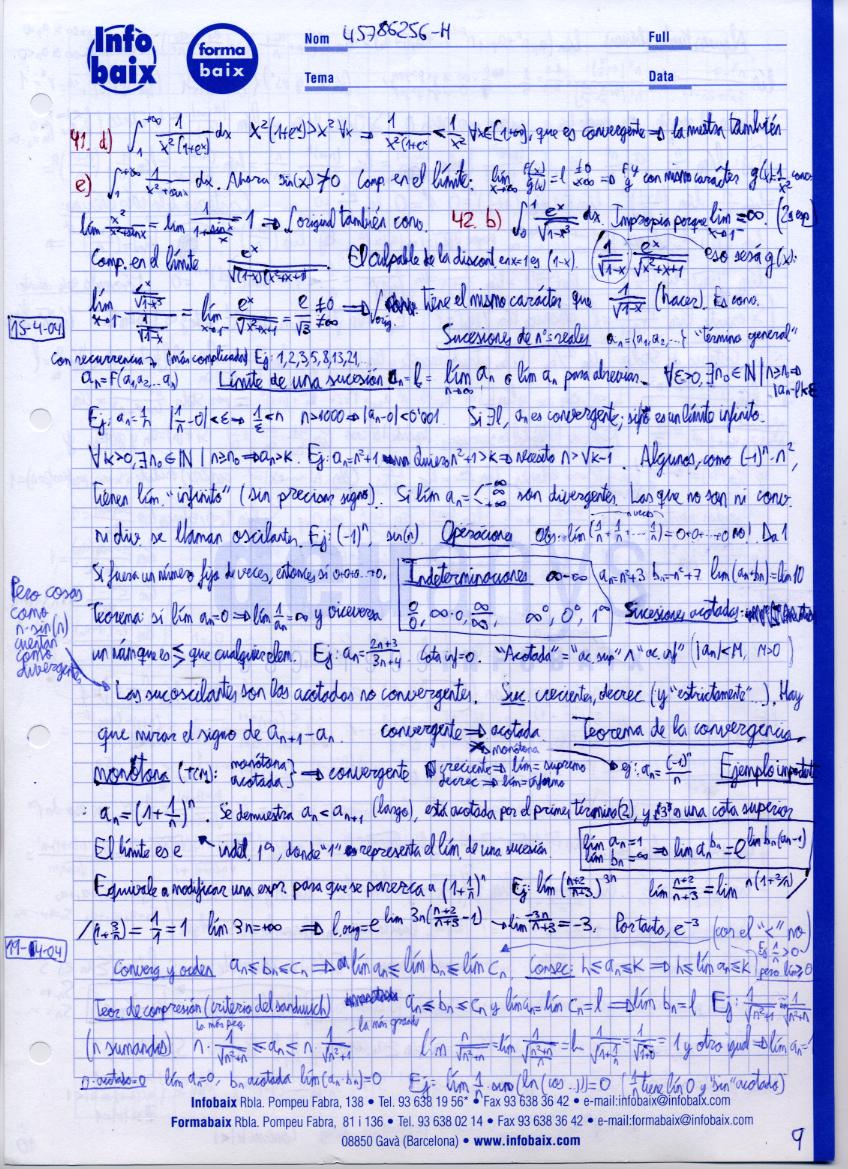 Info baix
forma baix
Nom 45786256-H
Full
Tema
Data
41. d) ∫₁^{+∞} 1/(x²(1+eˣ)) dx x²(1+eˣ)>x² ∀x ⇒ 1/(x²(1+eˣ) < 1/x² ∀x∈[1,+∞), que es convergente ⇒ la nuestra también
e) ∫₁^{+∞} 1/(x²+sinx) dx. Ahora sin(x) ≠0 Comp. en el límite: lim_{x→∞} f(x)/g(x) = l ≠0 ≠∞ ⇒ f y g con mismo carácter g(x)=1/x² conv.
lim x²/(x²+sinx) = lim 1/(1+sinx/x) = 1 ⇒ ∫original también conv. 42. b) ∫₀¹ eˣ/√(1-x³) dx. Impropia porque lim_{x→1⁻} =∞. (2ª esp)
Comp. en el límite eˣ/√((1-x)(x²+x+1)) El culpable de la discont. en x=1 es (1-x). (1/√(1-x)) · eˣ/√(x²+x+1) eso será g(x):
lim_{x→1⁻} (eˣ/√(1-x³))/(1/√(1-x)) = lim_{x→1⁻} eˣ/√(x²+x+1) = e/√3 ≠0 ≠∞ ⇒ ∫orig. tiene el mismo carácter que 1/√(1-x) (hacer). Es conv.
15-4-04
Sucesiones de nº reales aₙ={a₁,a₂,...} "término general"
Con recurrencia → (más complicadas) Ej: 1,2,3,5,8,13,21,...
aₙ=F(a₁,a₂...aₙ) Límite de una sucesión aₙ=l= lim_{n→∞} aₙ o lím aₙ para abreviar. ∀ε>0, ∃n₀∈ℕ | n≥n₀⇒ |aₙ-l|<ε
Ej: aₙ=1/n |1/n-0|<ε→1/ε<n n>1000⇒|aₙ-0|<0'001. Si ∃l, aₙ es convergente; si es un límite infinito.
∀k>0,∃n₀∈ℕ | n≥n₀⇒aₙ>k. Ej: aₙ=n²+1 Quiero n²+1>k⇒necesito n>√(k-1). Algunos, como (-1)ⁿ·n²,
tienen lím. "infinito" (sin precisar signo). Si lím aₙ= -∞ +∞ ∞ son divergentes. Las que no son ni conv.
ni div se llaman oscilantes. Ej: (-1)ⁿ, sin(n). Operaciones obs: lím(1/n+1/n+...+1/n)=0+0+...+0 no! Da 1
n veces
Si fuera un número fijo de veces, entonces sí 0+0+...+0. Indeterminaciones ∞-∞ (aₙ=n²+3 bₙ=-n²+7 lim(aₙ+bₙ)=lim 10
Pero cosas como n·sin(n) cuentan como divergentes
Teorema: si lím aₙ=0⇒lím 1/aₙ=∞ y viceversa 0/0, ∞·0, ∞/∞, ∞⁰, 0⁰, 1^∞ Sucesiones acotadas:
un núm que es ≤ ≥ que cualquier elem. Ej: aₙ=(2n+3)/(3n+4) Cota inf=0. "Acotada"="ac. sup" ∧ "ac. inf" (|aₙ|<M, M>0)
Las suc oscilantes son las acotadas no convergentes. Suc. crecientes, decrec (y "estrictamente"...). Hay
que mirar el signo de aₙ₊₁-aₙ. convergente ⇒ acotada. Teorema de la convergencia
monótona → ej: aₙ=(-1)ⁿ/n
monótona (TCM): monótona acotada} ⇒ convergente creciente⇒lím= supremo decrec ⇒ lím=ínfimo Ejemplo important
: aₙ=(1+1/n)ⁿ. Se demuestra aₙ<aₙ₊₁ (largo), está acotada por el primer término(2), y "3" es una cota superior
El límite es e indet. 1^∞, donde "1" representa el lím. de una sucesión. lím aₙ=1 lím bₙ=∞ ⇒ lím aₙ^{bₙ}=e^{lím bₙ(aₙ-1)}
Equivale a modificar una expr. para que se parezca a (1+1/n)ⁿ Ej: lím((n+2)/(n+3))^{3n} lím (n+2)/(n+3)=lím n(1+2/n)/
/(1+3/n)=1/1=1 lím 3n=+∞ ⇒ l.orig=e^{lím 3n((n+2)/(n+3)-1)} → lím -3n/(n+3)=-3. Por tanto, e⁻³ (con el "<" no)
19-04-04
Ej 1/n>0 pero lím≥0
Converg y orden aₙ≤bₙ≤cₙ ⇒ lím aₙ≤ lím bₙ≤ lím cₙ Consec: h≤aₙ≤k ⇒ h≤ lím aₙ≤k
Teor de compresión (criterio del sandwich) aₙ≤bₙ≤cₙ y lím aₙ=lím cₙ=l ⇒ lím bₙ=l Ej: 1/√(n²+1) 1/√(n²+n)
la más peq. la más grande
(n sumandos) n· 1/√(n²+n) ≤aₙ≤ n· 1/√(n²+1) lím n/√(n²+n)=lím 1/√(1+1/n)=1/√(1+0)=1 y otro igual⇒lím aₙ=1
n·acotado=0 lím aₙ=0, bₙ acotada lím(aₙ·bₙ)=0 Ej: lím 1/n·seno(ln(cos...))=0 (1/n tiene lím 0 y "sin" acotado)
Infobaix Rbla. Pompeu Fabra, 138 • Tel. 93 638 19 56* • Fax 93 638 36 42 • e-mail:infobaix@infobaix.com
Formabaix Rbla. Pompeu Fabra, 81 i 136 • Tel. 93 638 02 14 • Fax 93 638 36 42 • e-mail:formabaix@infobaix.com
08850 Gavà (Barcelona) • www.infobaix.com
9